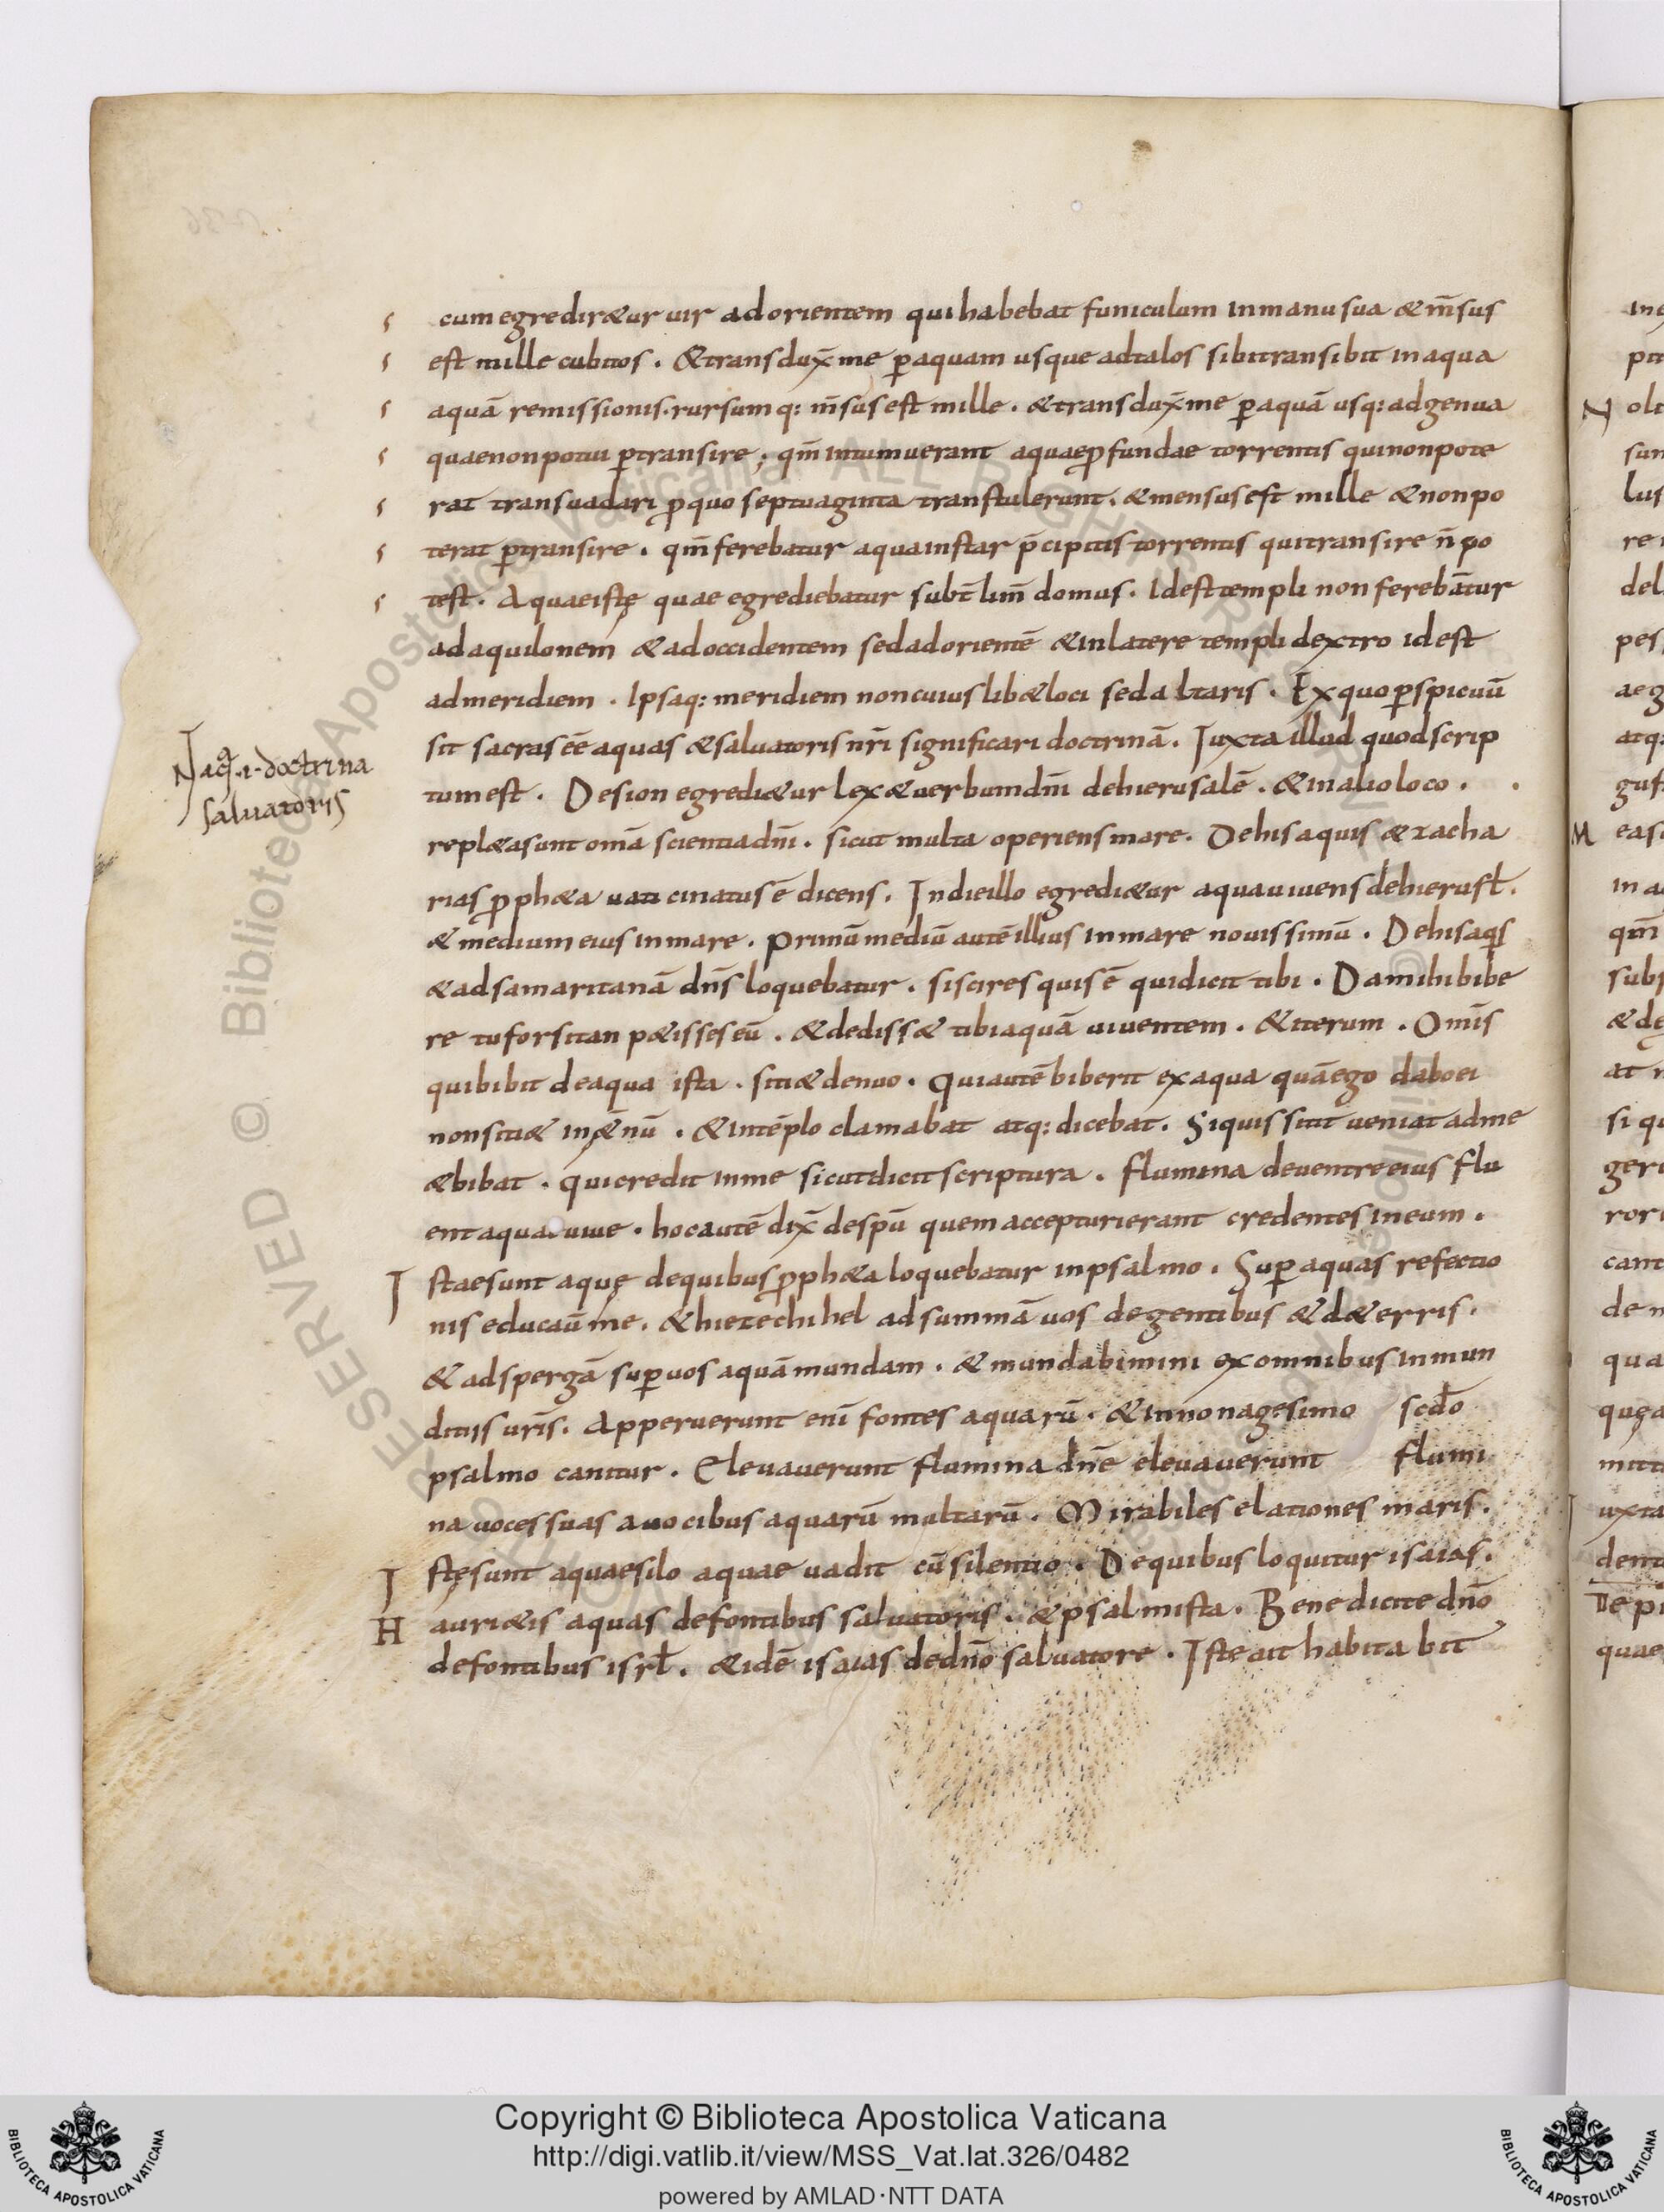 cum egredir&ur uir ad orientem qui habebat funiculum in manu sua & m̄sus
est mille cubitos . & transdux̄ me ꝑ aquam usque ad talos sibi transibit in aqua
aquā remissionis . rursumq: m̄sus est mille . & transdux̄ me ꝑ aquā usq: ad genua
quae non potui ꝑtransire ; qm̄ intumuerant aquae ꝓfundae torrentis qui non pote
rat transuadari ꝓ quo septuaginta transtulerunt . & mensus est mille & non po
terat ꝑtransire . qm̄ ferebatur aqua instar p̄cipitis torrentis qui transire n̄ po
test . Aquae istę quae egrediebatur subt̄ lim̄ domus . Id est templi non ferebāntur
ad aquilonem & ad occidentem sed ad orientē & in latere templi dextro id est
ad meridiem . Ipsaq: meridiem non cuiuslib& loci sed altaris . Ex quo ꝑspicuū
sit sacras eē aquas & saluatoris nr̄i significari doctrinā . Iuxta illud quod scrip
tum est . De sion egredi&ur lex & uerbum dn̄i de hierusalē . & in alio loco . .
repl&a sunt omā scientia dn̄i . sicut multa operiens mare . De his aquis & zacha
rias ꝓph&a uaticinatus ē dicens . In die illo egredi&ur aqua uiuens de hierusł .
& medium eius in mare . primū mediū autē illius in mare nouissimū . De his aqs
& ad samaritanā dn̄s loquebatur . si scires quis ē qui dicit tibi . Da mihi bibe
re tu forsitan p&isses eū . & dediss& tibi aquā uiuentem . & iterum . Omīs
qui bibit de aqua ista . siti& denuo . qui autē biberit ex aqua quā ego dabo ei
non siti& in &̄nū . & in tēplo clamabat atq: dicebat . Si quis sitit ueniat ad me
& bibat . qui credit in me sicut dicit scriptura . flumina de uentre eius flu
ent aquae uiue . hoc autē dix̄ de spū quem accepturi erant credentes in eum .
I stae sunt aquę de quibus ꝓph&a loquebatur in psalmo . Suꝑ aquas refectio
nis educaū me . & hiezechihel adsummā uos de gentibus & de terris .
& adspergā suꝑ uos aquā mundam . & mundabimini ex omnibus inmun
ditiis ur̄is . Apperuerunt enī fontes aquarū . & in nonagesimo scdō
psalmo canitur . Eleuauerunt flumina dn̄e eleuauerunt flumi
na uoces suas a uocibus aquarū multarū . Mirabiles elationes maris .
I stę sunt aquae silo aquae uadit cū silentio . De quibus loquitur isaias .
H auri&is aquas de fontibus saluatoris . & psalmista . Benedicite dn̄o
de fontibus isrł . & idē isaias de dn̄o saluatore . Iste ait habitabit
N aq .i. doctrina
saluatoris
Copyright © Biblioteca Apostolica Vaticana
http://digi.vatlib.it/view/MSS_Vat.lat.326/0482
powered by AMLAD·NTT DATA